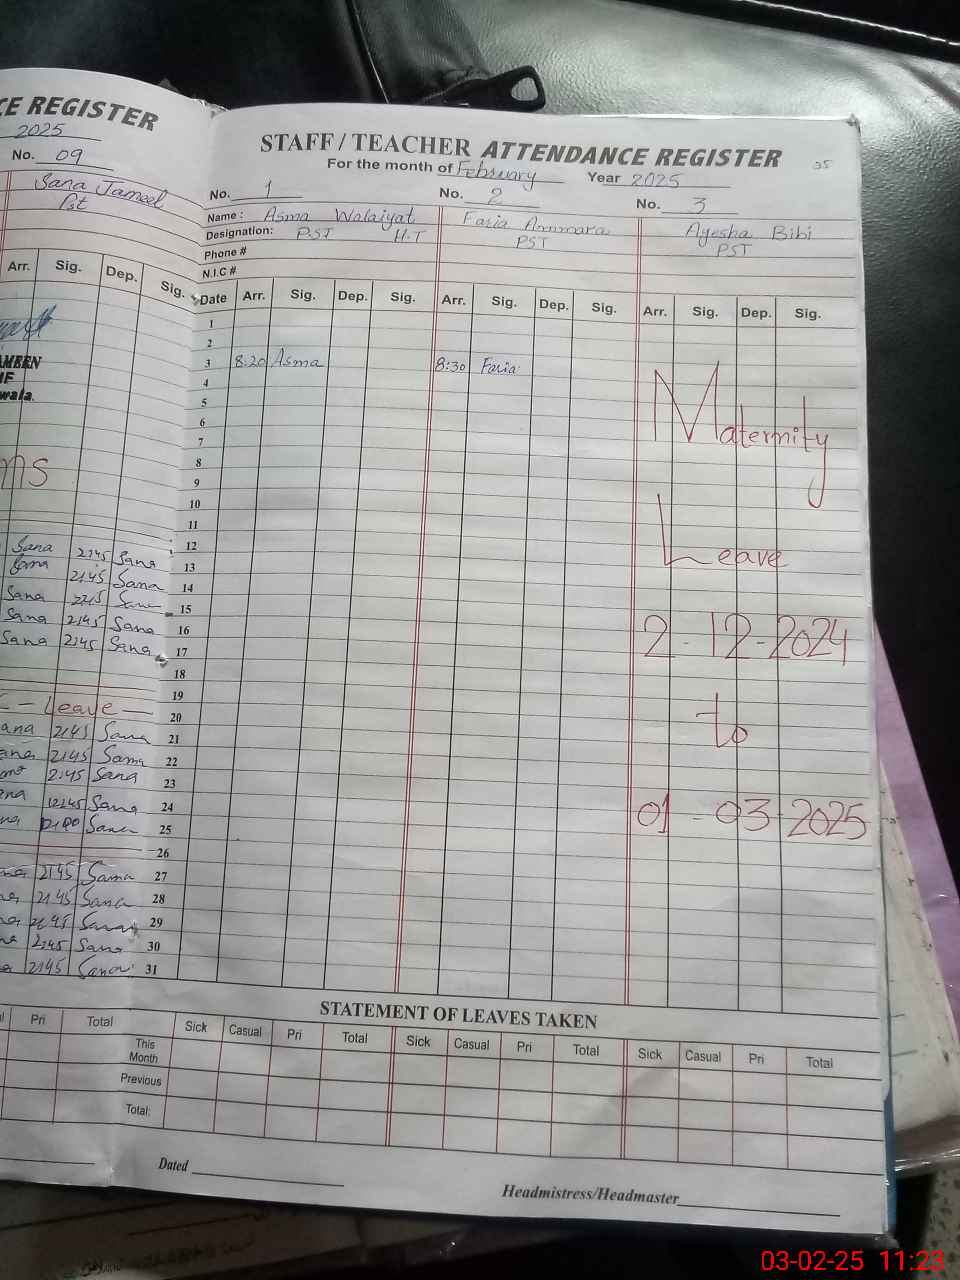 CE REGISTER
2025
No. 09
Sana Jameel
Pst
Arr. Sig. Dep. Sig.
AMEEN
wala.
Sana 2:45 Sana
2:45 Sana
Sana
Sana 2:45 Sana
Sana 2:45 Sana
Leave
ana 2:45 Sana
2:45 Sana
2:45 Sana
ana 12:45 Sana
12:00 Sana
2:45 Sana
2:45 Sana
2:45 Sana
2:45 Sana
2:45 Sana
Pri Total
STAFF / TEACHER ATTENDANCE REGISTER 35
For the month of February Year 2025
No. 1 No. 2 No. 3
Name: Asma Walaiyat Faria Ammara Ayesha Bibi
Designation: PST H.T PST PST
Phone #
N.I.C #
Date Arr. Sig. Dep. Sig. Arr. Sig. Dep. Sig. Arr. Sig. Dep. Sig.
1
2
3 8:20 Asma 8:30 Faria
4
5
6
7
8
9
10
11
12
13
14
15
16
17
18
19
20
21
22
23
24
25
26
27
28
29
30
31
Maternity
Leave
2-12-2024
to
01-03-2025
STATEMENT OF LEAVES TAKEN
Sick Casual Pri Total Sick Casual Pri Total Sick Casual Pri Total
This Month
Previous
Total:
Dated
Headmistress/Headmaster
03-02-25 11:23